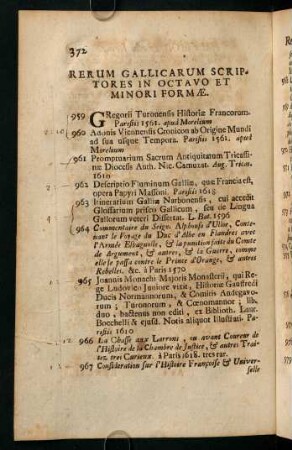 372
RERUM GALLICARUM SCRIP-
TORES IN OCTAVO ET
MINORI FORMÆ.
959 GRegorii Turonensis Historiæ Francorum.
Parisiis 1561. apud Morelium
960 Adonis Viennensis Cronicon ab Origine Mundi
ad sua usque Tempora. Parisiis 1561. apud
Morelium
961 Promptuarium Sacrum Antiquitatum Tricassi-
næ Diocesis Auth. Nic. Camuzat. Aug. Tricas.
1610
962 Descriptio Fluminum Galliæ, quæ Francia est,
opera Papyri Massoni. Parisiis 1618
963 Itinerarium Galliæ Narbonensis, cui accedit
Glossarium priscum Gallicum, seu de Lingua
Gallorum veteri Dissertat. L. Bat. 1596
964 Commentaire du Seign. Alphonse d'Ulloe, Conte-
nant le Voyage du Duc d'Albe en Flandres avec
l'Armée Espagnolle, & la punition faite du Comte
de Argument, & autres, & la Guerre, comme
elle se passa contre le Prince d'Orange, & autres
Rebelles. &c. à Paris 1570
965 Joannis Monachi Majoris Monasterii, qui Re-
ge Ludovico Juniore vixit, Historiæ Gauffredi
Ducis Normannorum, & Comitis Andegavo-
rum; Turonorum, & Cœnomannor; lib.
duo, hactenus non editi, ex Biblioth. Laur.
Bochelli & ejusd. Notis aliquot Illustrati. Pa-
risiis 1610
966 La Chasse aux Larrons, ou avant Coureur de
l'Histoire de la Chambre de Justice, & autres Trai-
tez trez Curieux. à Paris 1618. tres rar.
967 Consideration sur l'Histoire Françoise & Univer-
selle